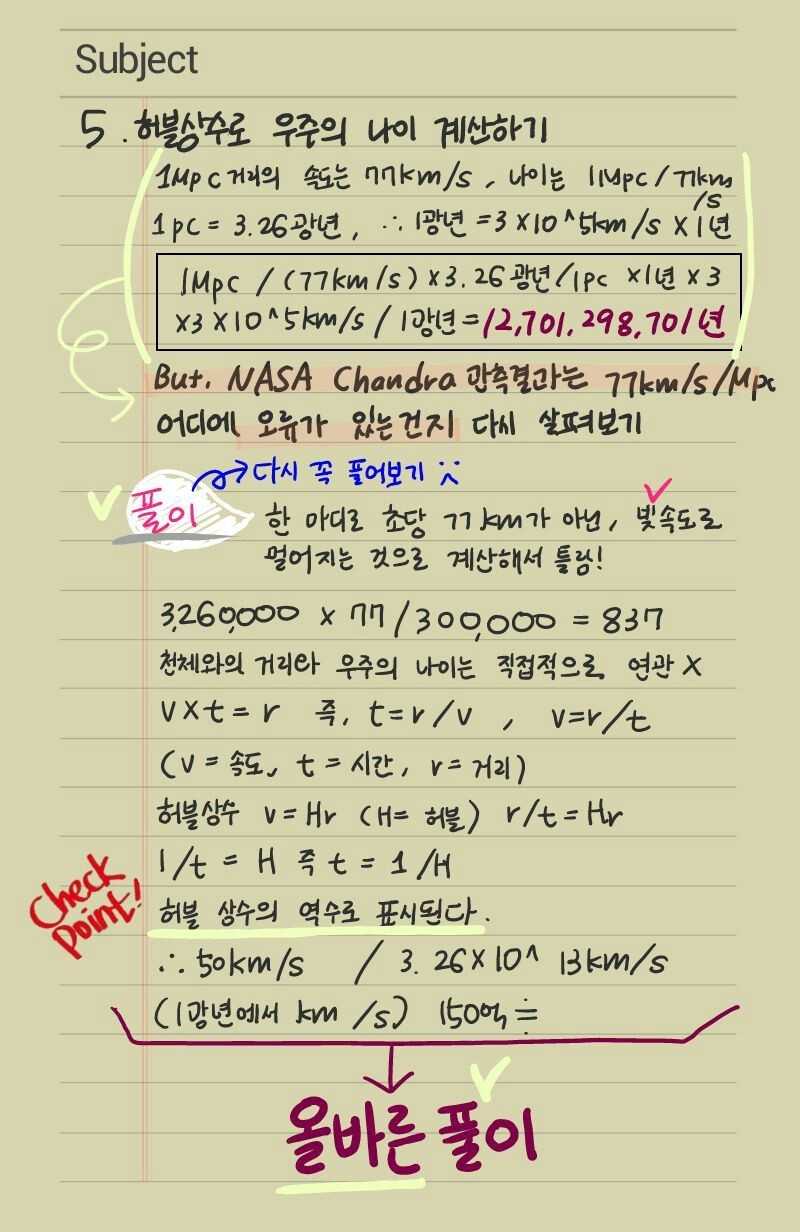 Subject
5. 허블상수로 우주의 나이 계산하기
1Mpc 거리의 속도는 77km/s, 나이는 1Mpc/77km/s
1pc = 3.26광년, ∴ 1광년 = 3×10^5km/s × 1년
1Mpc / (77km/s) × 3.26광년/1pc × 1년 × 3
×3×10^5km/s / 1광년 = 12,701,298,701년
But, NASA Chandra 관측결과는 77km/s/Mpc
어디에 오류가 있는건지 다시 살펴보기
→ 다시 꼭 풀어보기
풀이 한 마디로 초당 77km가 아닌, 빛속도로
멀어지는 것으로 계산해서 틀림!
3,260,000 × 77/300,000 = 837
천체와의 거리와 우주의 나이는 직접적으로 연관 X
v×t = r 즉, t=r/v , v=r/t
(v = 속도, t = 시간, r = 거리)
허블상수 v=Hr (H= 허블) r/t=Hr
1/t = H 즉 t = 1/H
Check Point!
허블 상수의 역수로 표시된다.
∴ 50km/s / 3.26×10^13km/s
(1광년에서 km/s) 150억 ≒
올바른 풀이